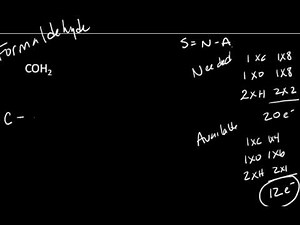 Formaldehyde
COH₂
C –
S = N - A
Needed
1 x C 1 x 8
1 x O 1 x 8
2 x H 2 x 2
20 e⁻
Available
1 x C 1x4
1 x O 1x6
2 x H 2x1
12 e⁻